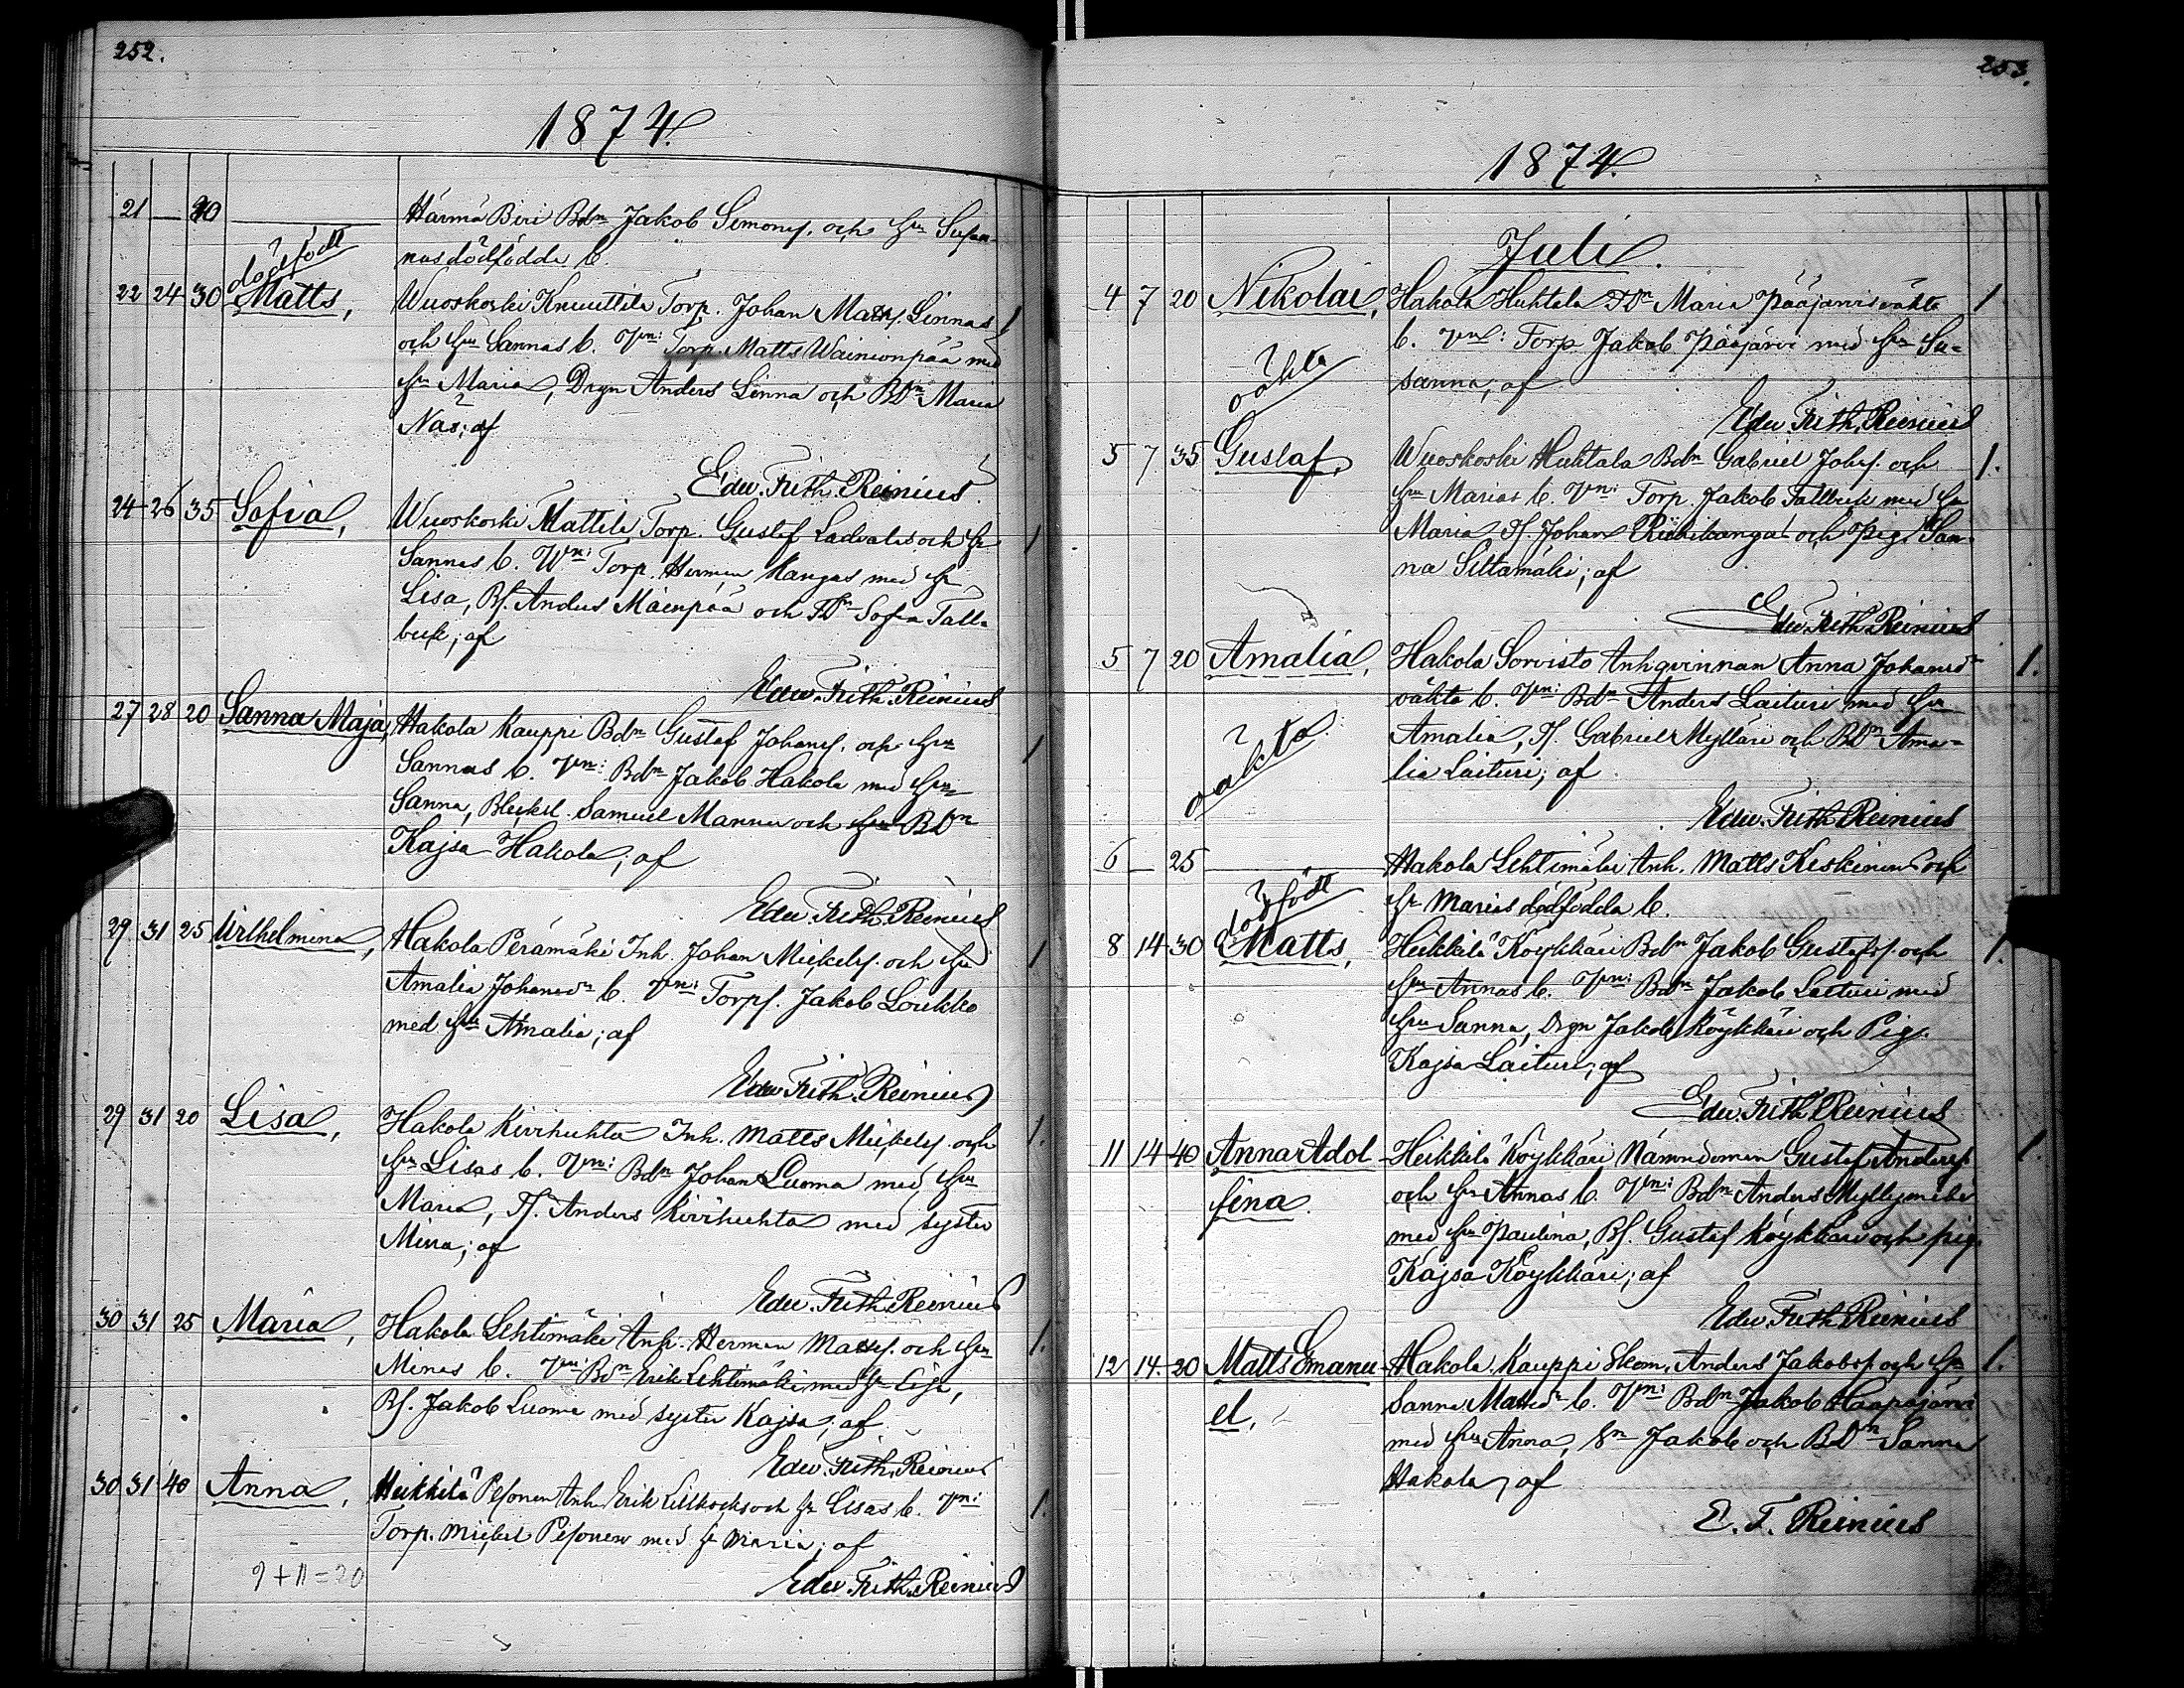 252.
1874.
21 — 40 Härmä Biri Bdn Jakob Simonss. och Hu Susan-
dödfödt nas dödfödda b.
22 24 30 Matts, Wuoskoski Knuuttila Torp. Johan Matss. Linnas
och Hu Sannas b. Vn: Torp. Matts Wainionpää med
Hu Maria, Drgn Anders Linna och BDn Maria
Nas; af
Edw. Frith. Reinius.
24 26 35 Sofia, Wuoskoski Mattila Torp. Gustaf Ladvalas och Hu
Sannas b. Wn: Torp. Herman Kangas med Hu
Lisa, Bs. Anders Mäenpää och TDn Sofia Tall-
buk; af
Edw. Frith. Reinius
27 28 20 Sanna Maja, Hakola Kauppi Bdn Gustaf Johanss. och Hu
Sannas b. Vn: Bdn Jakob Hakola med Hu
Sanna, Bleksl. Samuel Mannu och Hu BDn
Kajsa Hakola; af
Edw. Frith. Reinius
29 31 25 Wilhelmina, Hakola Perämäki Inh. Johan Mickelss. och Hu
Amalia Johansdr b. Vn: Torps. Jakob Loukko
med Hu Amalia; af
Edw. Frith. Reinius
29 31 20 Lisa, Hakola Kivihuhta Inh. Matts Mickelss. och 1.
Hu Lisas b. Vn: Bdn Johan Luoma med Hu
Maria, Ts. Anders Kivihuhta med syster
Mina; af
Edw. Frith. Reinius
30 31 25 Maria, Hakola Lehtimäki Anh. Herman Matss. och Hu 1.
Minas b. Vn: Bdn Erik Lehtimäki med Hu Eja,
Bs. Jakob Luoma med syster Kajsa; af
Edw. Frith. Reinius
30 31 40 Anna, Heikkilä Pesonen Anh. Erik Lillkocks och Hu Lisas b. Vn: 1.
Torp. Mickel Pesonen med Hu Maria; af
9 + 11 = 20
Edw. Frith. Reinius
253.
1874.
Juli.
4 7 20 Nikolai, Hakola Huhtala TDn Maria Pääjärvis oäkta 1
b. Vn: Torp Jakob Pääjärvi med Hu Su-
oäkta sanna, af
Edw. Frith. Reinius
5 7 35 Gustaf, Wuoskoski Huhtala Bdn Gabriel Johss. och 1.
Hu Marias b. Vn: Torp. Jakob Tallbuk med Hu
Maria, Ts. Johan Riihikangas och Pig. San-
na Siltamäki; af
Edw. Frith. Reinius
5 7 20 Amalia, Hakola Sorvisto Anhqvinnan Anna Johansdr 1.
oäkta b. Vn: Bdn Anders Laituri med Hu
oäkta. Amalia, Ts. Gabriel Mylläri och BDn Ama-
lia Laituri; af
Edw. Frith. Reinius
6 — 25 Hakola Lehtimäki Anh. Matts Keskinens och
dödfödt Hu Marias dödfödda b.
8 14 30 Matts, Heikkilä Köykkäri Bdn Jakob Gustafss. och 1.
Hu Annas b. Vn: Bdn Jakob Laituri med
Hu Sanna, Drgn Jakob Köykkäri och Pig.
Kajsa Laituri; af
Edw. Frith. Reinius
11 14 40 Anna Adol- Heikkilä Köykkäri Nämndeman Gustaf Anderss. 1.
fina. och Hu Annas b. Vn: Bdn Anders Myllymäki
med Hu Paulina, Bs. Gustaf Köykkäri och pig.
Kajsa Köykkäri; af
Edw. Frith. Reinius
12 14 20 Matts Emanu- Hakola Kauppi Skom. Anders Jakobss. och Hu 1.
el, Sanna Mattsdr b. Vn: Bdn Jakob Haapajärvi
med Hu Anna, Sn Jakob och BDn Sanna
Hakola; af
E. F. Reinius